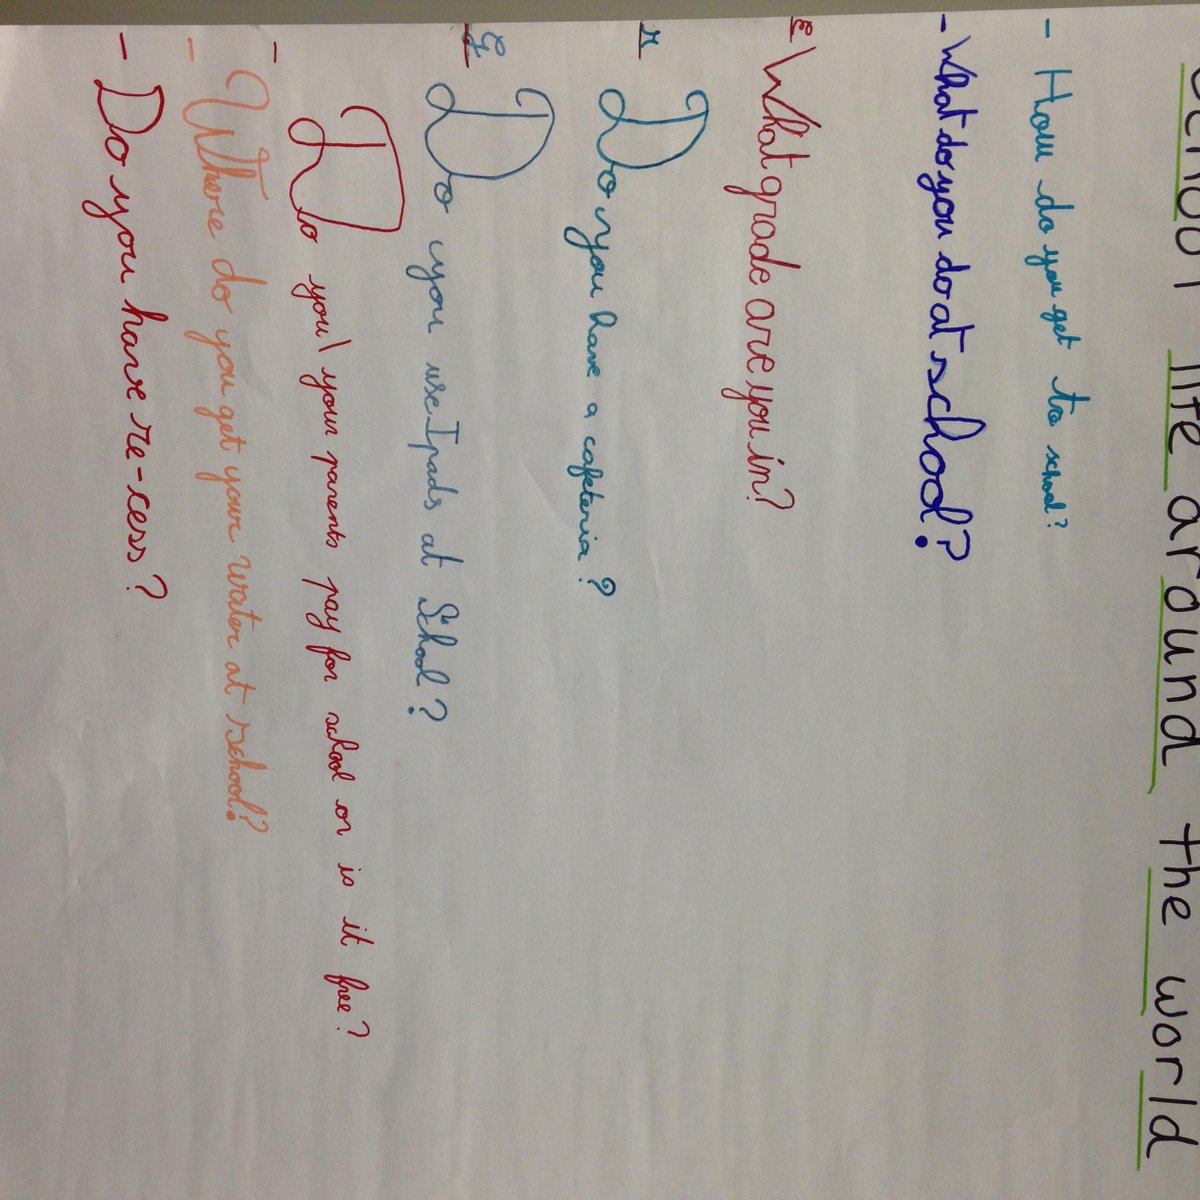 School life around the world
- How do you get to school?
- What do you do at school?
What grade are you in?
Do you have a cafeteria?
Do you use Ipads at School?
- Do you\your parents pay for school or is it free?
- Where do you get your water at school?
- Do you have re-cess?